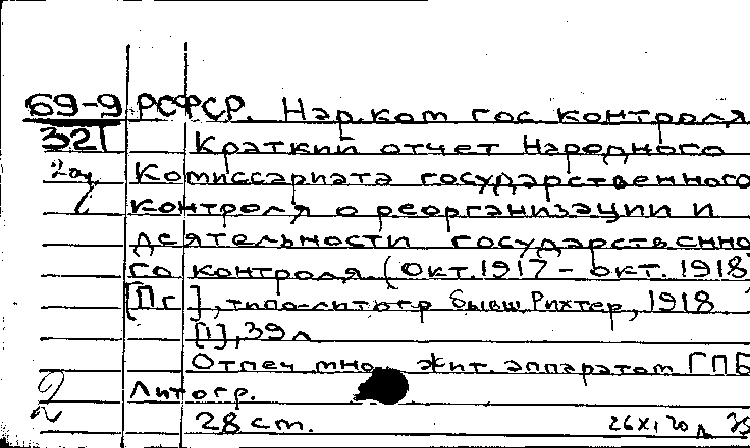 69-9 РСФСР. Нар. ком гос контроля
321 Краткий отчет Народного
Комиссариата государственного
контроля о реорганизации и
деятельности государственно
го контроля. (окт. 1917 – окт. 1918
[Пг], типо-литогр бывш. Рихтер, 1918
[1], 39 л
Отпеч мно жит. аппаратом ГПБ
Литогр.
2
28 ст.